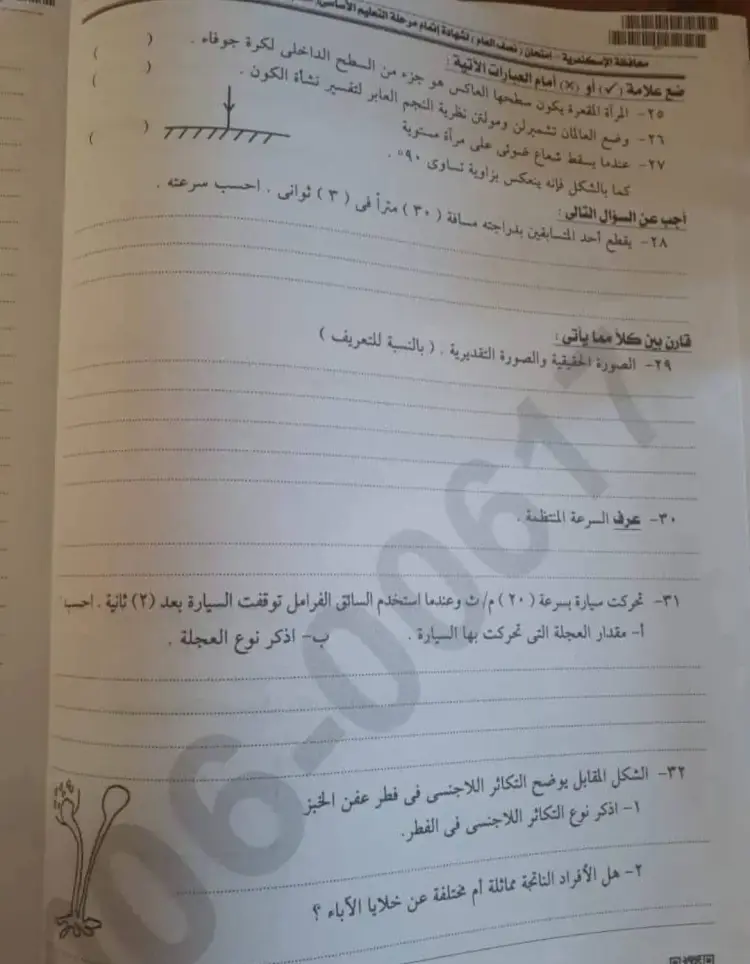 محافظة الإسكندرية - إمتحان ( نصف العام ) لشهادة إتمام مرحلة التعليم الأساسى
ضع علامة (✓) أو (×) أمام العبارات الآتية :
٢٥- المرآة المقعرة يكون سطحها العاكس هو جزء من السطح الداخلى لكرة جوفاء . ( )
٢٦- وضع العالمان تشمبرلن ومولتن نظرية النجم العابر لتفسير نشأة الكون . ( )
٢٧- عندما يسقط شعاع ضوئى على مرآة مستوية
كما بالشكل فإنه ينعكس بزاوية تساوى ٩٠° . ( )
أجب عن السؤال التالى :
٢٨- يقطع أحد المتسابقين بدراجته مسافة ( ٣٠ ) متراً فى ( ٣ ) ثوانى . احسب سرعته .
قارن بين كلاً مما يأتى :
٢٩- الصورة الحقيقية والصورة التقديرية . ( بالنسبة للتعريف )
٣٠- عرف السرعة المنتظمة .
٣١- تحركت سيارة بسرعة ( ٢٠ ) م/ث وعندما استخدم السائق الفرامل توقفت السيارة بعد (٢) ثانية . احسب
أ- مقدار العجلة التى تحركت بها السيارة . ب- اذكر نوع العجلة .
٣٢- الشكل المقابل يوضح التكاثر اللاجنسى فى فطر عفن الخبز
١- اذكر نوع التكاثر اللاجنسى فى الفطر.
٢- هل الأفراد الناتجة مماثلة أم مختلفة عن خلايا الآباء ؟
006-00617